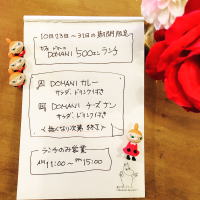 10月23日～31日の期間限定
DOMANI 500円ランチ
DOMANI カレー
サラダ、ドリンク付き
DOMANI チーズナン
サラダ、ドリンク付き
＜無くなり次第 終了＞
ランチのみ営業
AM 11:00～PM 15:00